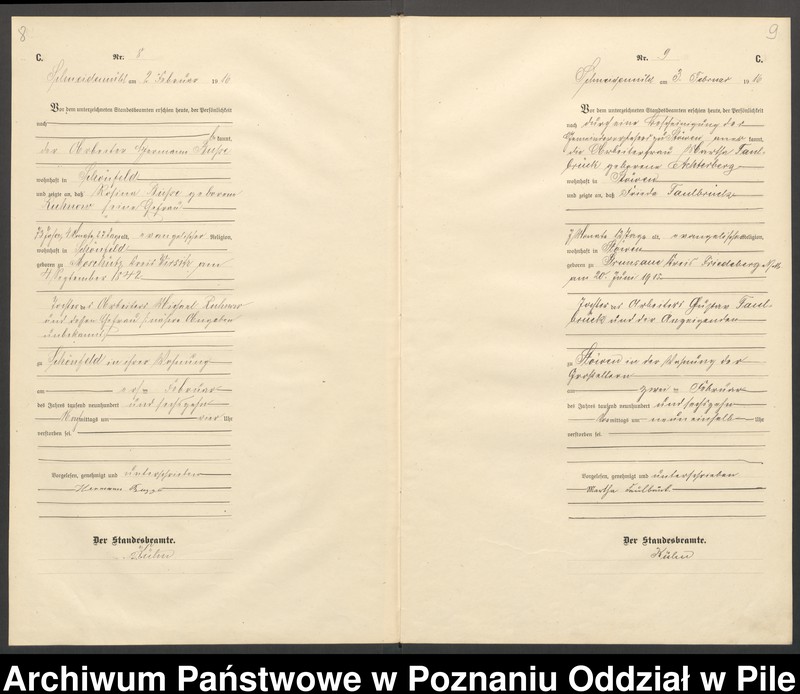 8
C.
Nr. 8
Schneidemühl am 2 Februar 1916
Vor dem unterzeichneten Standesbeamten erschien heute, der Persönlichkeit
nach
be kannt,
der Arbeiter Hermann Busse
wohnhaft in Schönfeld
und zeigte an, daß Rosina Busse geborene
seine Ehefrau
73 Jahre, 4 Monate, 27 Tage alt, evangelischer Religion,
wohnhaft in Schönfeld
geboren zu Kreis Wirsitz am
4 September 1842
Tochter des Arbeiters Michael
und dessen Ehefrau nähere Angaben
unbekannt
zu Schönfeld in ihrer Wohnung
am ersten Februar
des Jahres tausend neunhundert und sechzehn
Nachmittags um vier Uhr
verstorben sei.
Vorgelesen, genehmigt und unterschrieben
Hermann Busse
Der Standesbeamte.
Kühn
9
Nr. 9
C.
Schneidemühl am 3. Februar 1916
Vor dem unterzeichneten Standesbeamten erschien heute, der Persönlichkeit
nach durch eine Bescheinigung der
Gemeindevorstehers zu Stöwen aner kannt,
die Arbeiterfrau Martha Faul-
brück geborene Achterberg
wohnhaft in Stöwen
und zeigte an, daß Frieda Faulbrück
7 Monate 13 Tage alt, evangelischer Religion,
wohnhaft in Stöwen
geboren zu Kreis Friedeberg
am 20. Juni 1915
Tochter des Arbeiters Gustav Faul-
brück und der Anzeigenden
zu Stöwen in der Wohnung der
am zwei ten Februar
des Jahres tausend neunhundert und sechzehn
Vormittags um neun einhalb Uhr
verstorben sei.
Vorgelesen, genehmigt und unterschrieben
Martha Faulbrück
Der Standesbeamte.
Kühn
Archiwum Państwowe w Poznaniu Oddział w Pile